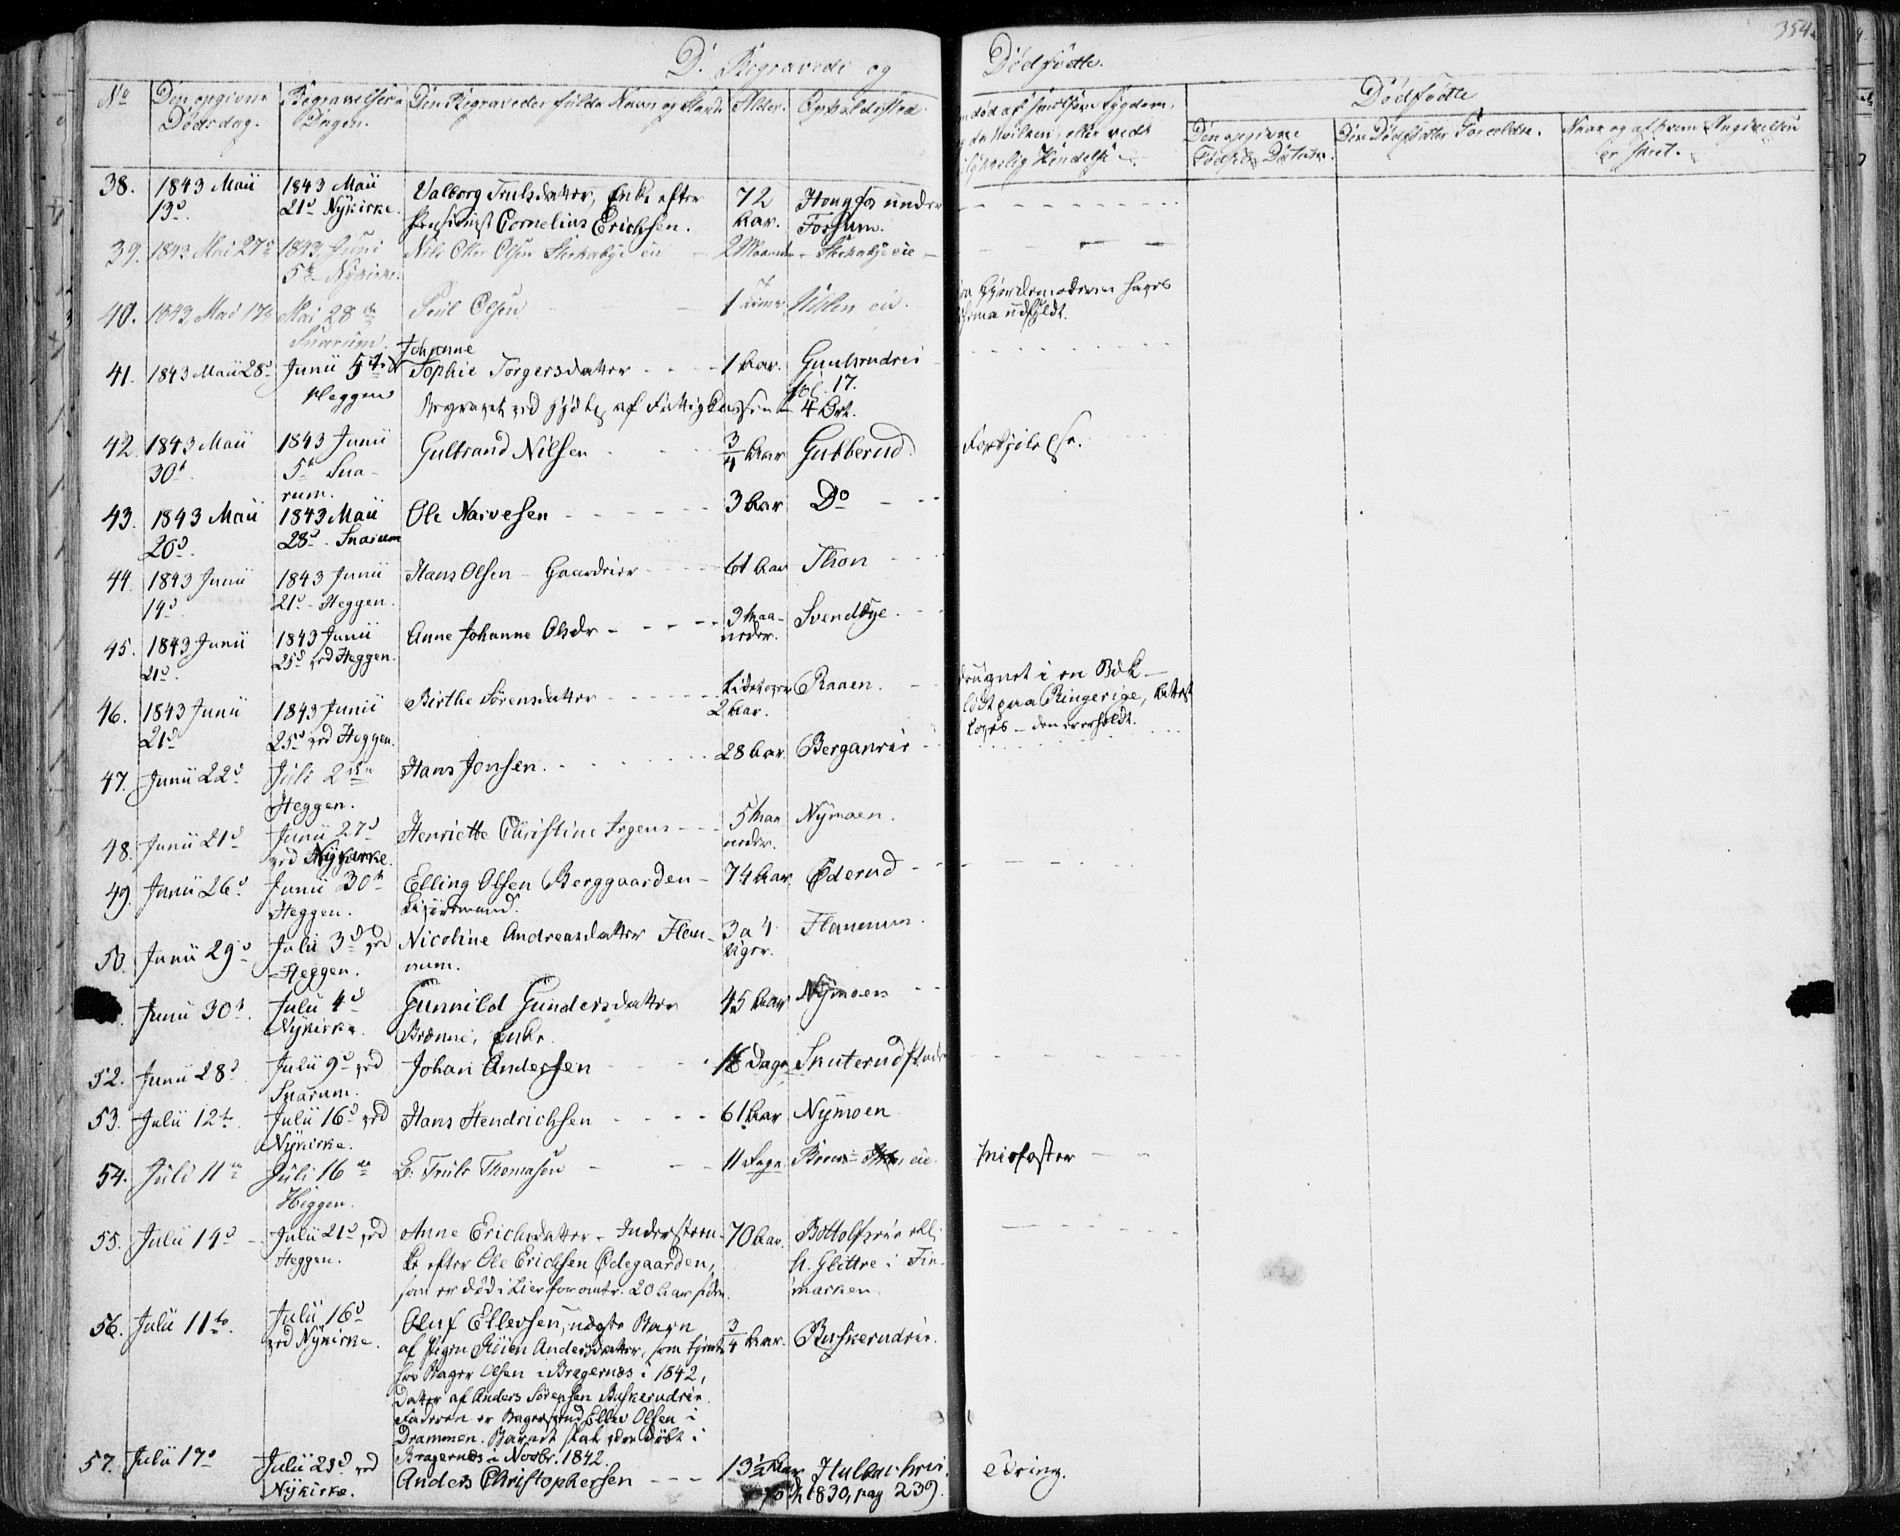 354.
D. Begravede og Dødfødte.
No
Den opgivne Dødsdag.
Begravelses Dagen.
Den Begravedes fulde Navn og Stand.
Alder.
Opholdssted.
Dødfødte
Den opgivne Fødsels Datum.
Den Dødfødtes Forældre.
Naar og af hvem Angivelsen er skeet.
38. 1843 Maii 13d. 1843 Maii 21d Nykirke. Valborg Trulsdatter, Enke efter Pensionist Cornelius Erichsen. 72 Aar. under Fossum.
39. 1843 Mai 27d 1843 Juni 5te Nykirke. Nils Olsen eie 2 Maaneder eie
40. 1843 Mai 17de Mai 28de Snarum. Olsen 1 eie.
41. 1843 Maii 28d Junii 5te Heggen Johanne Sophie Torgersdatter 1 Aar. fol. 17.
Begravet ved Hjelp af Fattig Cassen 4 Ort.
42. 1843 Maii 30te 1843 Junii 5te Snarum. Gulbrand Nilsen 3/4 Aar Gubberud. Forkjølelse.
43. 1843 Maii 20d. 1843 Maii 28d. Snarum Ole Narvesen 3 Aar Do
44. 1843 Junii 14d 1843 Junii 21d Heggen. Hans Olsen - Gaardeier 61 Aar Thon
45. 1843 Junii 21d. 1843 Junii 25d ved Heggen. Anne Johanne Olsdr 3 Maaneder. Svendbye.
46. 1843 Junii 21d 1843 Junii 25d ved Heggen. Birthe Sørensdatter Lidt over 2 Aar. Raaen. druknet i en Bæk - født paa Ringerige,
47. Junii 22d Juli 2den Heggen. Hans Jonsen. 28 Aar Berganeie
48. Junii 21d Junii 27d ved Nykirke. Henriette Christine Irgens 5 Maaneder. Nymoen.
49. Junii 26d Junii 30te Heggen. Elling Olsen Berggaarden - Leiermand. 74 Aar Øderud
50. Junii 29d Julii 3d ved Heggen. Nicoline Andreasdatter Flannum. 3 a 4 Uger. Flannum.
Junii 30te. Julii 4d Nykirke. Gunnild Gundersdatter Brænne, Enke. 45 Aar Nymoen
52. Junii 28d Julii 9d ved Snarum. Johan Andersen 16 Dage
53. Julii 12te Julii 16d ved Nykirke. Hans Hendrichsen 61 Aar Nymoen
54. Juli 11te Juli 16de Heggen. Truls Thomasen 11 Dage eie.
55. Julii 14d Julii 21d ved Heggen. Anne Erichsdatter - Inderst enke efter Ole Erichsen Ødegaarden, som er død i Lier for omtr. 20 Aar siden. 70 Aar. h. Glittre i Finmarken.
56. Julii 11te. Julii 16d ved Nykirke. Oluf Ellevsen, uægte Barn af Pigen Andersdatter, som tjente hos Bager Olsen i Bragernæs i 1842, Datter af Anders Sørensen Buskerudeie. Faderen er Bagersvend Ellev Olsen i Drammen. Barnet skal være døbt i Bragernæs i Novbr. 1842. 3/4 Aar. Buskerudeie.
57. Julii 17d Julii 23d ved Nykirke. Anders Christophersen 13 1/2 Aar 1830, pag 239. Tæring.